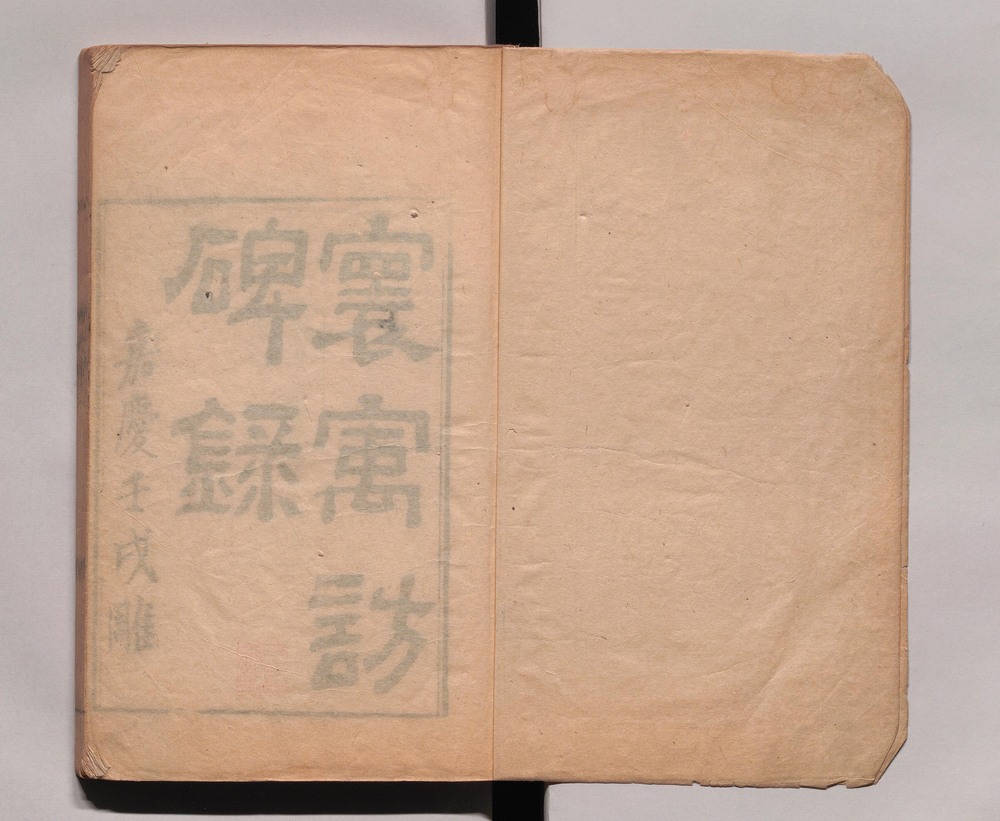 寰宇訪
碑錄
嘉慶壬戌雕